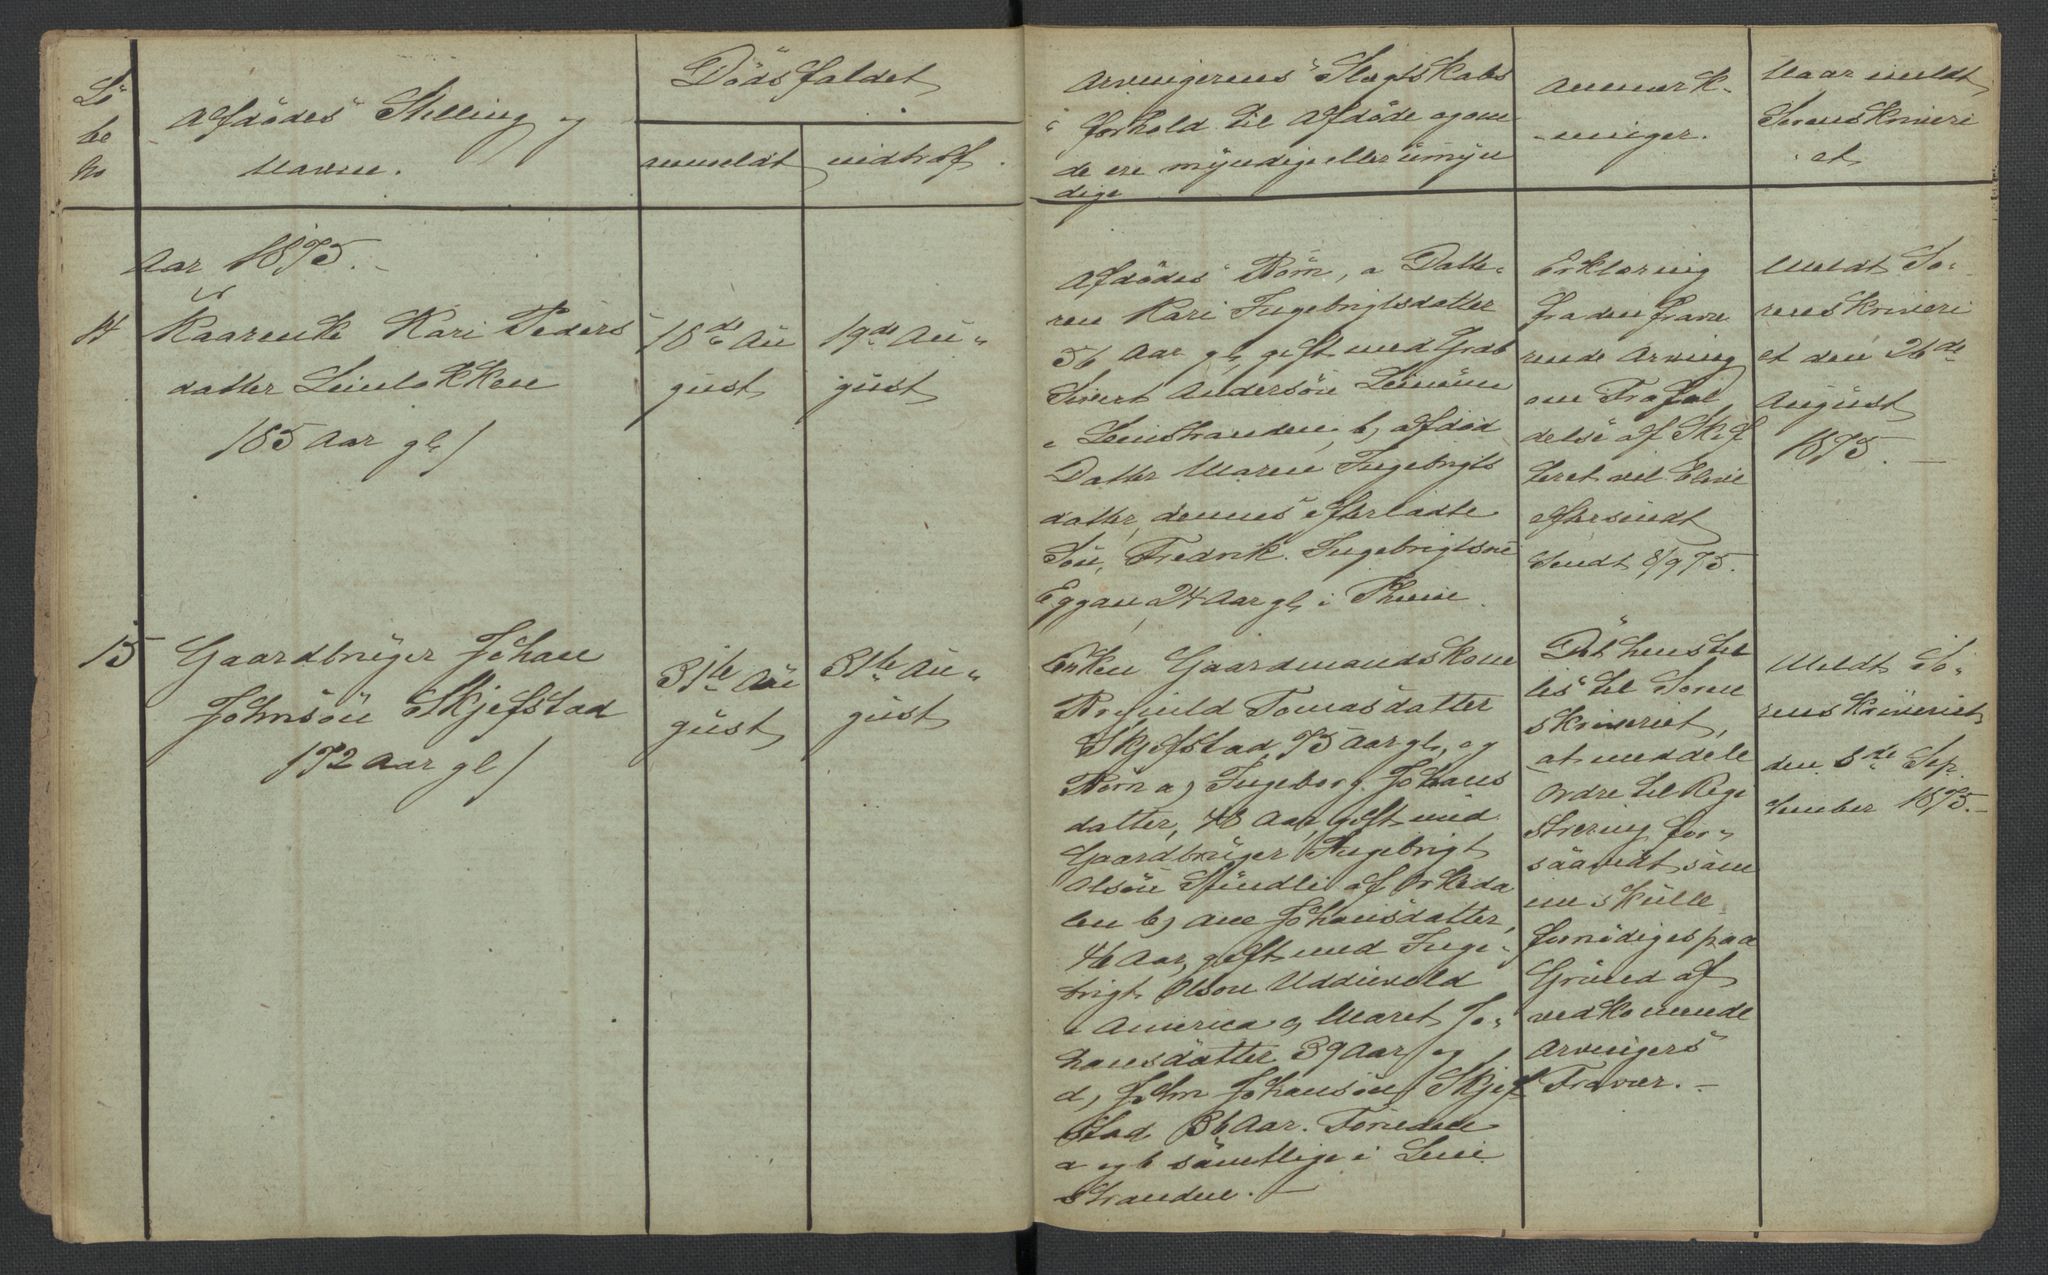 Lö
be
No
Afdödes Stilling og
Navn.
Dödsfaldet
anmeldt
indtraf.
Arvingerens Slegtskabs
forhold til Afdöde og om
de ere myndige eller umyn
dige
Anmærk-
-ninger.
Naar meldt
Sorenskriveri
et
Aar 1875.
14
Kaarenke Kari Peders
datter Leinlökken
/85 Aar gl/
18de Au
gust
19de Au-
gust
Afdödes Börn, a Datte-
ren Kari Ingebrigtsdatter
56 Aar gl, gift med Grdb
Sivert Andersön Leinum
i Leinstranden, b, afdöd
Datter Maren Ingebrigts
datter, dennes efterladte
Sön, Fredrik Ingebrigtsön
Eggan, 24 Aar gl, i Thiem
Erklæring
fra den fravæ
rende Arving
om Frafal
delse af Skif
teret vil blive
eftersendt
Sendt 8/9 75.
Meldt So-
renskriveri
et den 26de
August
1875.
15
Gaardbruger Johan
Johnsön Skjefstad
/72 Aar gl/
31te Au
gust
31te Au-
gust
Enken Gaardmandskone
Brynild Tomasdatter
Skjefstad, 75 Aar gl, og
Börn a, Ingeborg Johans
datter, 48 Aar, gift med
Gaardbruger Ingebrigt
Olsön Sundli af Orkeda
len b, Ane Johansdatter,
46 Aar, gift med Inge-
brigt Olson Udduvold
i America c, Maret Jo-
hansdatter 39 Aar og
d, John Johansön Skjef
stad 36 Aar.
a og b samtlige i Lein
stranden.
Det henstil
les til Soren
skriveriet,
at meddele
Ordre til Regi
strering for-
saavidt sam
me skulle
fornödiges paa
Grund af
vedkommende
Arvingers
Fravær.
Meldt So-
renskriveriet
den 8de Sep
tember 1875.